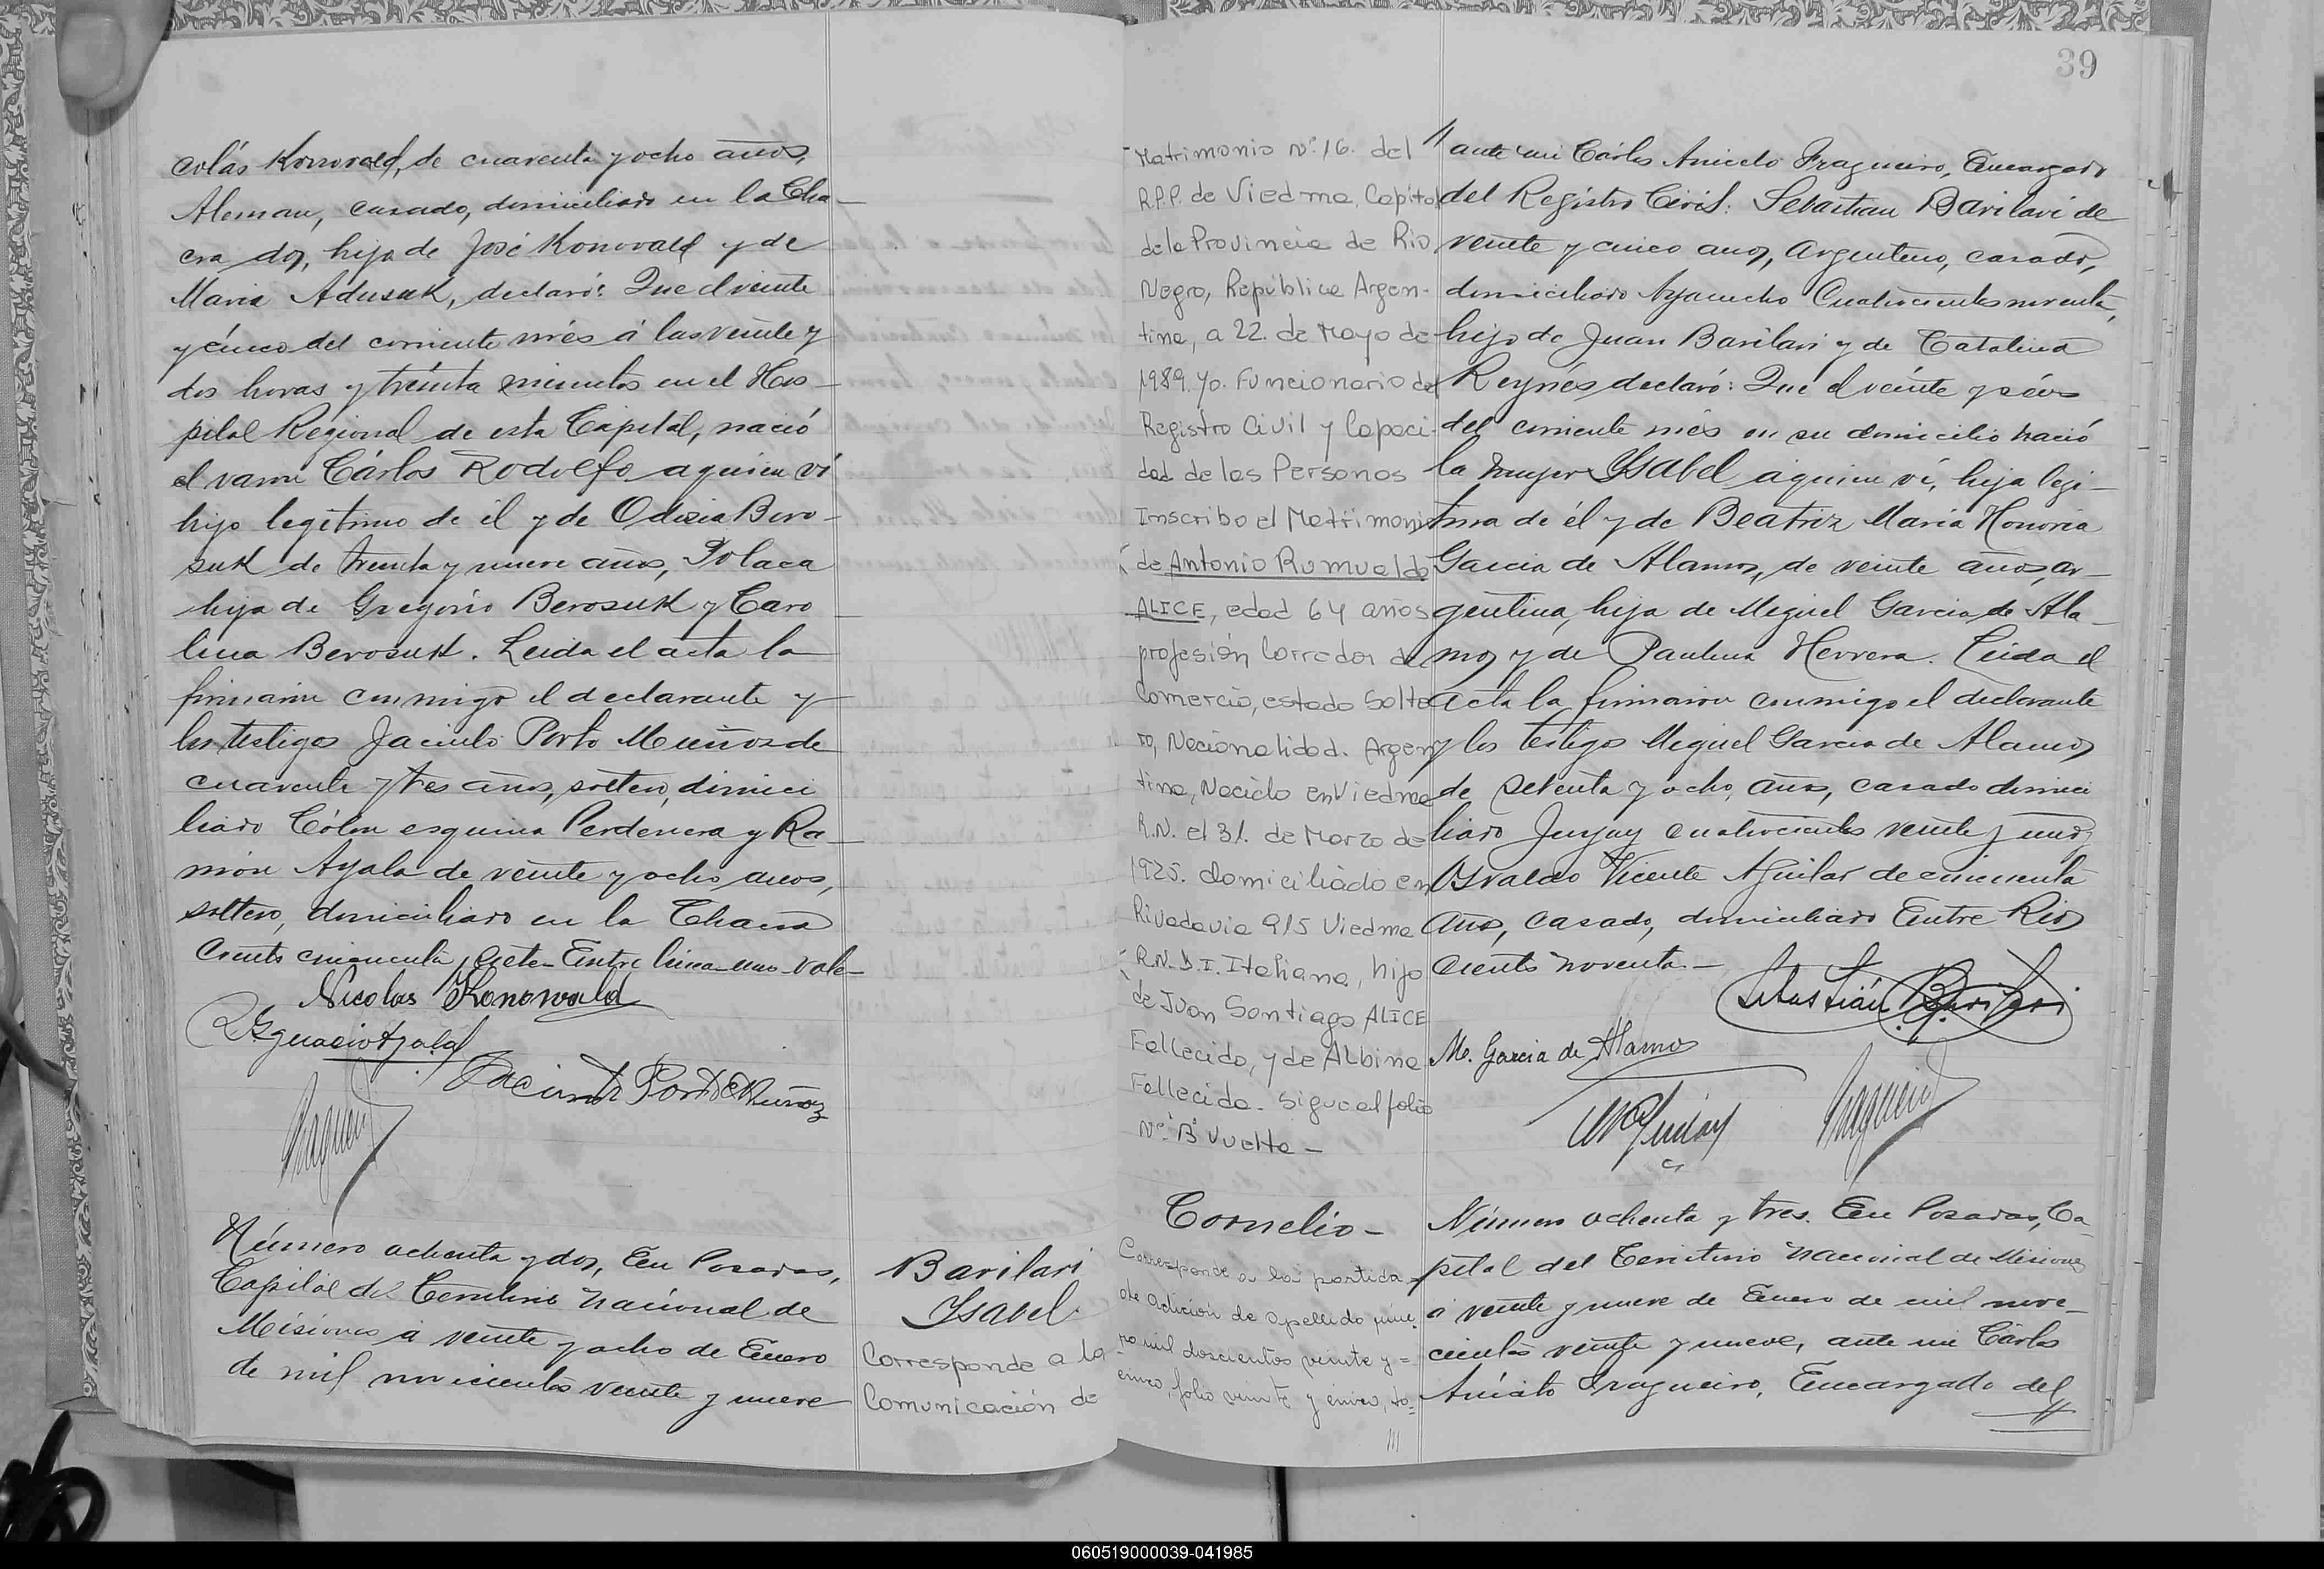 colás Konovald, de cuarenta y ocho años,
Aleman, casado, domiciliado en la Cha-
cra dos, hijo de José Konovald y de
Maria Adusuk, declaró: Que el veinte
y cinco del corriente més á las veinte y
dos horas y treinta minutos en el Hos-
pital Regional de esta Capital, nació
el varon Cárlos Rodolfo a quien ví
hijo legítimo de él y de Odisia Bero-
suk de treinta y nueve años, Polaca
hija de Gregorio Berosuk y Caro
lina Berosuk. Leida el acta la
firmaron conmigo el declarante y
los testigos Jacinto Porto Muñoz de
cuarenta y tres años, soltero, domici
liado Cólon esquina Perdernera y Ra-
món Ayala de veinte y ocho años,
soltero, domiciliado en la Chacra
Ciento cincuenta y siete - Entre linea - uno - Vale -
Nicolas Konowald
R Ygnacio Ayala
Jacinto Porto Muñoz
Fragueiro
Número ochenta y dos, En Posadas,
Capital del Territorio Nacional de
Misiones á veinte y ocho de Enero
de mil novecientos veinte y nueve
Barilari
Ysabel
Corresponde a la
Comunicación de
39
Matrimonio Nº 16. del
R.P.P. de Viedma, Capital
de la Provincia de Rio
Negro, República Argen-
tina, a 22. de Mayo de
1989. Yo. Funcionario del
Registro Civil y Capaci-
dad de las Personas
Inscribo el Matrimonio
de Antonio Romualdo
ALICE, edad 64 años
profesión Corredor de
Comercio, estado Solte
ro, Nacionalidad. Argen
tina, Nacido en Viedma
R.N. el 31. de Marzo de
1925. domiciliado en
Rivadavia 915 Viedma
R.N. D.I. Italiana, hijo
de Juan Santiago ALICE
Fallecido, y de Albina
Fallecida. Sigue al folio
Nº B Vuelta -
// ante mi Cárlos Aniceto Fragueiro, Encargado
del Registro Civil: Sebastian Barilari de
veinte y cinco años, argentino, casado,
domiciliado Ayacucho Cuatrocientos noventa,
hijo de Juan Barilari y de Catalina
Reynés declaró: Que el veinte y séis
del corriente més en su domicilio nació
la mujer Ysabel a quien ví, hija legí-
tima de él y de Beatriz Maria Honoria
Garcia de Alamos, de veinte años, ar-
gentina, hija de Miguel Garcia de Ala-
mos y de Paulina Herrera. Leida el
acta la firmaron conmigo el declarante
y los testigos Miguel Garcia de Alamos
de setenta y ocho, años, casado domici
liado Jujuy cuatrocientos veinte y uno,
Osvaldo Vicente Aguilar de cincuenta
años, casado, domiciliado Entre Rios
Ciento noventa. -
Sebastián Barilari
M. Garcia de Alamos
Fragueiro
Cornelio -
Corresponde a la partida
de adición de apellido núme-
ro mil doscientos veinte y =
cinco, folio veinte y cinco, to-
///
Número ochenta y tres. En Posadas, Ca-
pital del Territorio Nacional de Misiones
á veinte y nueve de Enero de mil nove-
cientos veinte y nueve, ante mi Cárlos
Aniceto Fragueiro, Encargado del
//
060519000039-041985